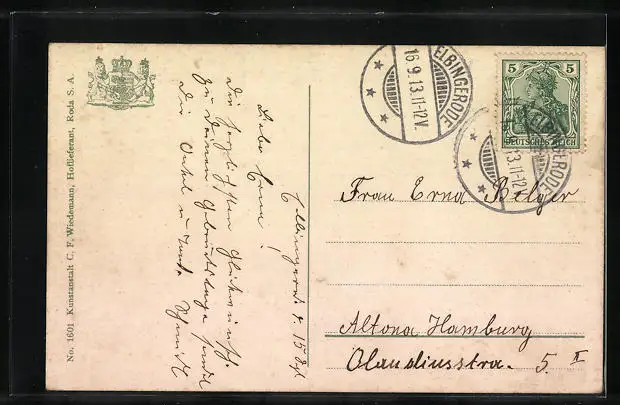 No. 1601 Kunstanstalt C. F. Wiedemann, Hoflieferant, Roda S. A.
Elbingerode d. 15
Liebe Erna!
Die herzlichsten Glückwünsche
zu Deinem Geburtstage sendet
Dir Onkel u. Schmidt
ELBINGERODE
16.9.13.11-12V.
5 5
DEUTSCHES REICH
ELBINGERODE
13.11-12
Frau Erna Belger
Altona Hamburg
Claudiusstra. 5. II